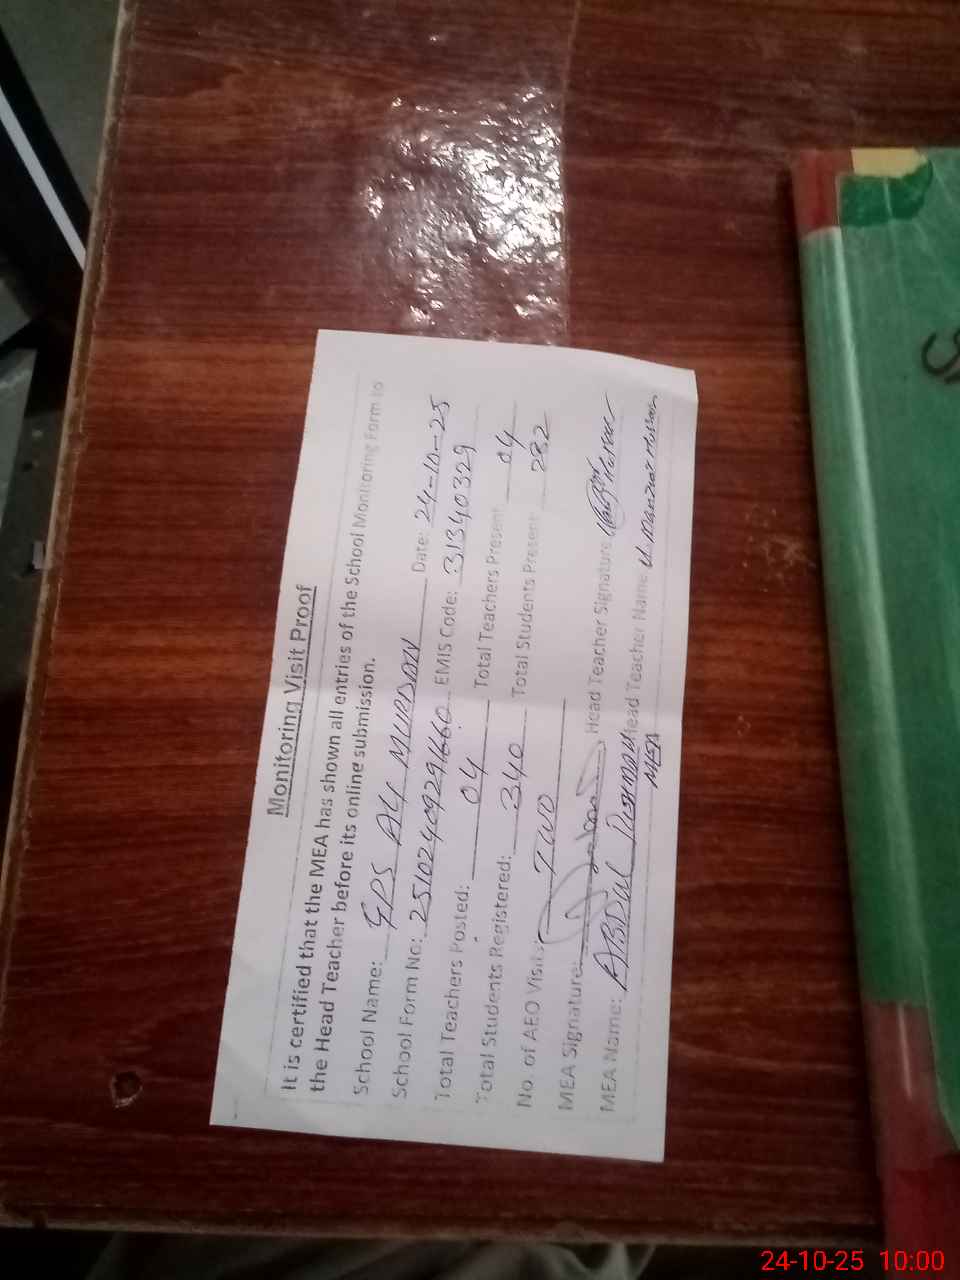 Monitoring Visit Proof
It is certified that the MEA has shown all entries of the School Monitoring Form to
the Head Teacher before its online submission.
School Name: GPS Aly MURDAN Date: 24-10-25
School Form No: 25102409291660 EMIS Code: 31340329
Total Teachers Posted: 04 Total Teachers Present 04
Total Students Registered: 340 Total Students Present: 282
No. of AEO Visits: TWO
MEA Signature: Head Teacher Signature
MEA Name: ABDUL Head Teacher Name
MEA
24-10-25 10:00